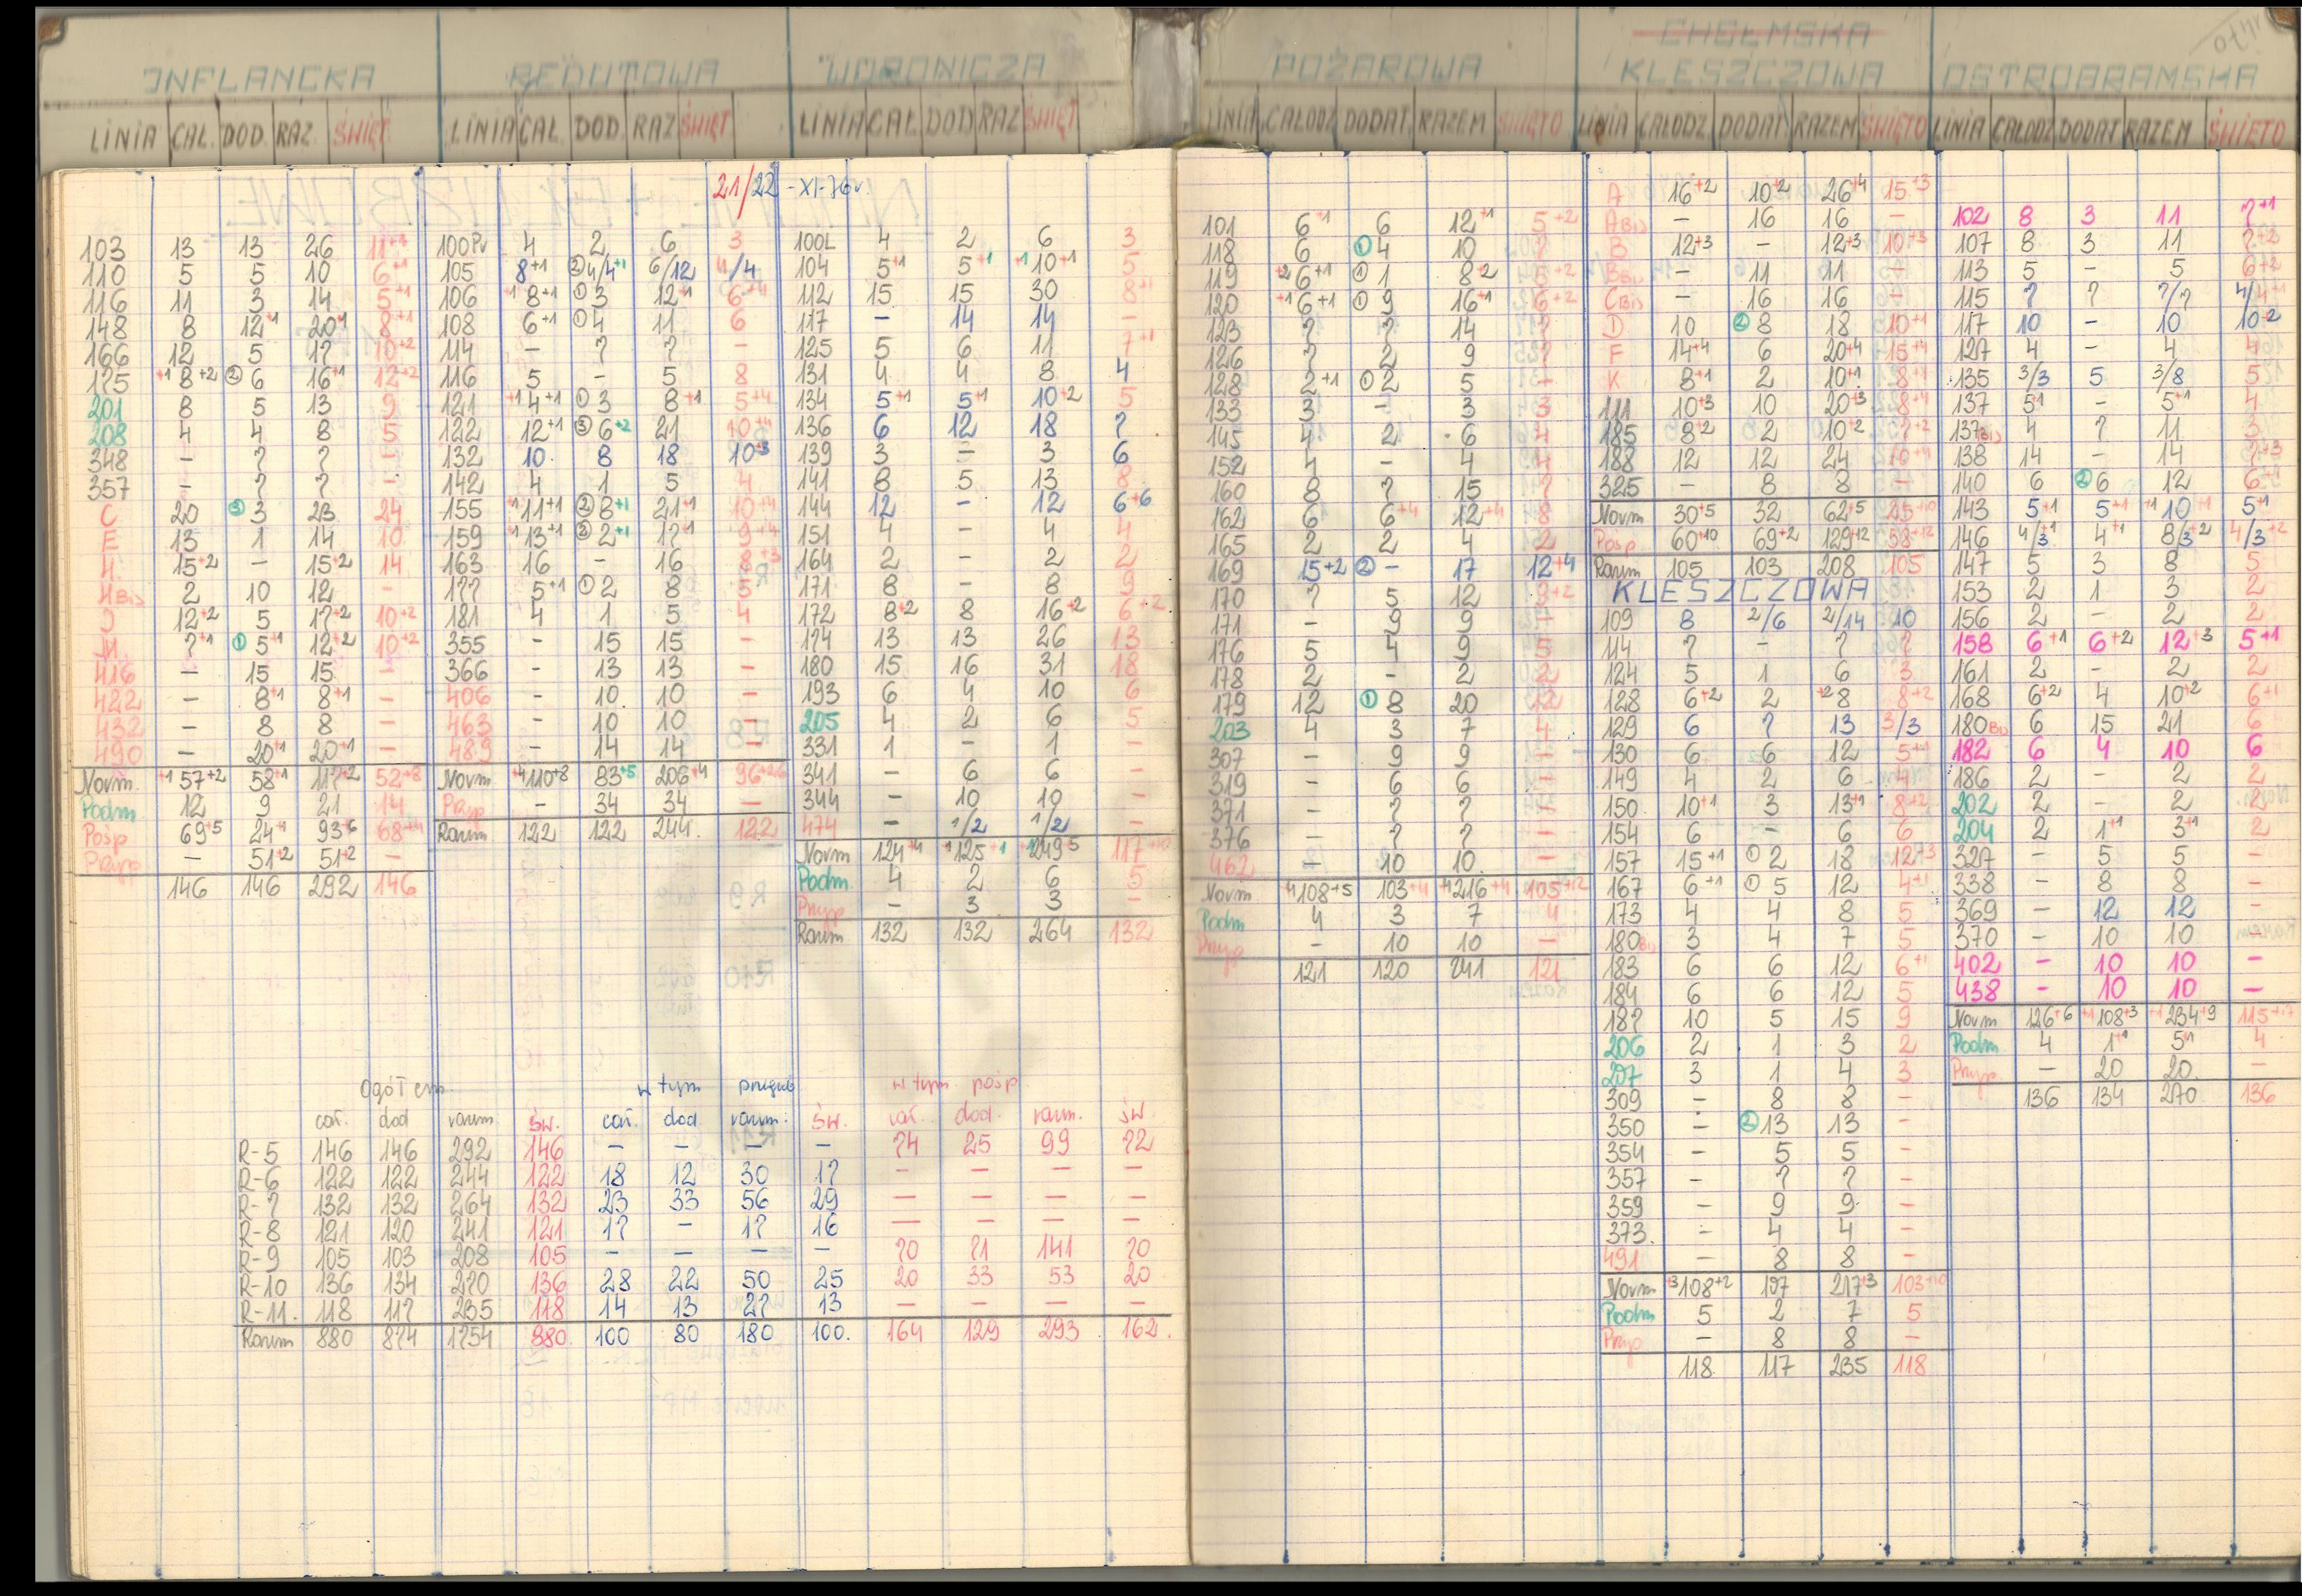 INFLANCKA
LINIA CAŁ. DOD. RAZ. ŚWIĘT.
103 13 13 26 11+1
110 5 5 10 6+1
116 11 3 14 5+1
148 8 12+1 20+1 8+1
166 12 5 17 10+2
175 +1 8+2 ② 6 16+1 12+2
201 8 5 13 9
208 4 4 8 5
348 - 7 7 -
357 - 7 7 -
C 20 ③ 3 23 24
E 13 1 14 10
H 15+2 - 15+2 14
H Bis 2 10 12 -
J 12+2 5 17+2 10+2
M 7+1 ① 5+1 12+2 10+2
416 - 15 15 -
422 - 8+1 8+1 -
432 - 8 8 -
490 - 20+1 20+1 -
Norm. +1 57+2 58+1 117+2 52+8
Podm 12 9 21 14
Pośp 69+5 24+1 93+6
Przysp - 51+2 51+2 -
146 146 292 146
REDUTOWA
LINIA CAŁ. DOD. RAZ ŚWIĘT
21/22 -XI-76r.
100Pr 4 2 6 3
105 8+1 ② 4/4+1 6/12 4/4
106 +1 8+1 ① 3 12+1 6+4
108 6+1 ① 4 11 6
114 - 7 7 -
116 5 - 5 8
121 +1 4+1 ① 3 8+1 5+4
122 12+1 ③ 6+2 21 10+4
132 10 8 18 10+3
142 4 1 5 4
155 +1 11+1 ② 8+1 21+1 10+4
159 +1 13+1 ② 2+1 17+1 9+4
163 16 - 16 8+3
177 5+1 ① 2 8 5
181 4 1 5 4
355 - 15 15 -
366 - 13 13 -
406 - 10 10 -
463 - 10 10 -
489 - 14 14 -
Norm +4 110+8 83+5 206+4 96+26
Przysp - 34 34 -
Razem 122 122 244 122
WORONICZA
LINIA CAŁ. DOD RAZ ŚWIĘT
100L 4 2 6 3
104 5+1 5+1 +1 10+1 5
112 15 15 30 8+1
117 - 14 14 -
125 5 6 11 7+1
131 4 4 8 4
134 5+1 5+1 10+2 5
136 6 12 18 7
139 3 - 3 6
141 8 5 13 8
144 12 - 12 6+6
151 4 - 4 4
164 2 - 2 2
171 8 - 8 9
172 8+2 8 16+2 6+2
174 13 13 26 13
180 15 16 31 18
193 6 4 10 6
205 4 2 6 5
331 1 - 1 -
341 - 6 6 -
344 - 10 10 -
474 - 1/2 1/2 -
Norm 124+4 +1 125+1 +1 249+5
Podm 4 2 6 5
Przysp - 3 3 -
Razem 132 132 264 132
Ogółem w tym przegub w tym pośp
cał. dod razem św. cał. dod. razem: św. cał. dod. razem. św
R-5 146 146 292 146 - - - - 74 25 99 72
R-6 122 122 244 122 18 12 30 17 - - - -
R-7 132 132 264 132 23 33 56 29 - - - -
R-8 121 120 241 121 17 - 17 16 - - - -
R-9 105 103 208 105 - - - - 70 71 141 70
R-10 136 134 270 136 28 22 50 25 20 33 53 20
R-11. 118 117 235 118 14 13 27 13 - - - -
Razem 880 874 1754 880. 100 80 180 100. 164 129 293 162.
POŻAROWA
LINIA CAŁODZ DODAT. RAZEM ŚWIĘTO
101 6+1 6 12+1 5+2
118 6 ① 4 10 7
119 +2 6+1 ① 1 8+2 5+2
120 +1 6+1 ① 9 16+1 6+2
123 7 7 14 7
126 7 2 9 7
128 2+1 ① 2 5 -
133 3 - 3 3
145 4 2 6 4
152 4 - 4 4
160 8 7 15 7
162 6 6+4 12+4 8
165 2 2 4 2
169 15+2 ② - 17 12+4
170 7 5 12 9+2
171 - 9 9 -
176 5 4 9 5
178 2 - 2 2
179 12 ① 8 20 12
203 4 3 7 4
307 - 9 9 -
319 - 6 6 -
371 - 7 7 -
376 - 7 7 -
462 - 10 10 -
Norm +4 108+5 103+4 +4 216+4 105+12
Podm 4 3 7 4
Przysp - 10 10 -
121 120 241 121
CHEŁMSKA
KLESZCZOWA
LINIA CAŁODZ. DODAT RAZEM ŚWIĘTO
A 16+2 10+2 26+4 15+3
A Bis - 16 16 -
B 12+3 - 12+3 10+3
B Bis - 11 11 -
C Bis - 16 16 -
D 10 ② 8 18 10+1
F 14+4 6 20+4 15+4
K 8+1 2 10+1 8+1
111 10+3 10 20+3 8+4
185 8+2 2 10+2 7+2
188 12 12 24 10+4
325 - 8 8 -
Norm 30+5 32 62+5 25+10
Pośp 60+10 69+2 129+12 58+12
Razem 105 103 208 105
KLESZCZOWA
109 8 2/6 2/14 10
114 7 - 7 7
124 5 1 6 3
128 6+2 2 +2 8 8+2
129 6 7 13 3/3
130 6 6 12 5+1
149 4 2 6 4
150 10+1 3 13+1 8+2
154 6 - 6 6
157 15+1 ① 2 18 12+3
167 6+1 ① 5 12 4+1
173 4 4 8 5
180 Bis 3 4 7 5
183 6 6 12 6+1
184 6 6 12 5
187 10 5 15 9
206 2 1 3 2
207 3 1 4 3
309 - 8 8 -
350 - ② 13 13 -
354 - 5 5 -
357 - 7 7 -
359 - 9 9 -
373. - 4 4 -
491 - 8 8 -
Norm +3 108+2 107 217+3 103+10
Podm 5 2 7 5
Przysp - 8 8 -
118 117 235 118
OSTROBRAMSKA
LINIA CAŁODZ DODAT RAZEM ŚWIĘTO
102 8 3 11 7+1
107 8 3 11 7+2
113 5 - 5 6+2
115 7 7 7/7 4/4+1
117 10 - 10 10+2
127 4 - 4 4
135 3/3 5 3/8 5
137 5+1 - 5+1 4
137 Bis 4 7 11 3
138 14 - 14 7+3
140 6 ② 6 12 6
143 5+1 5+1 +1 10+1 5+1
146 4/3+1 4+1 8/3+2 4/3+2
147 5 3 8 5
153 2 1 3 2
156 2 - 2 2
158 6+1 6+2 12+3 5+1
161 2 - 2 2
168 6+2 4 10+2 6+1
180 Bis 6 15 21 6
182 6 4 10 6
186 2 - 2 2
202 2 - 2 2
204 2 1+1 3+1 2
327 - 5 5 -
338 - 8 8 -
369 - 12 12 -
370 - 10 10 -
402 - 10 10 -
438 - 10 10 -
Norm 126+6 +1 108+3 +1 234+9 115+17
Podm 4 1+1 5+1 4
Przysp - 20 20 -
136 134 270 136